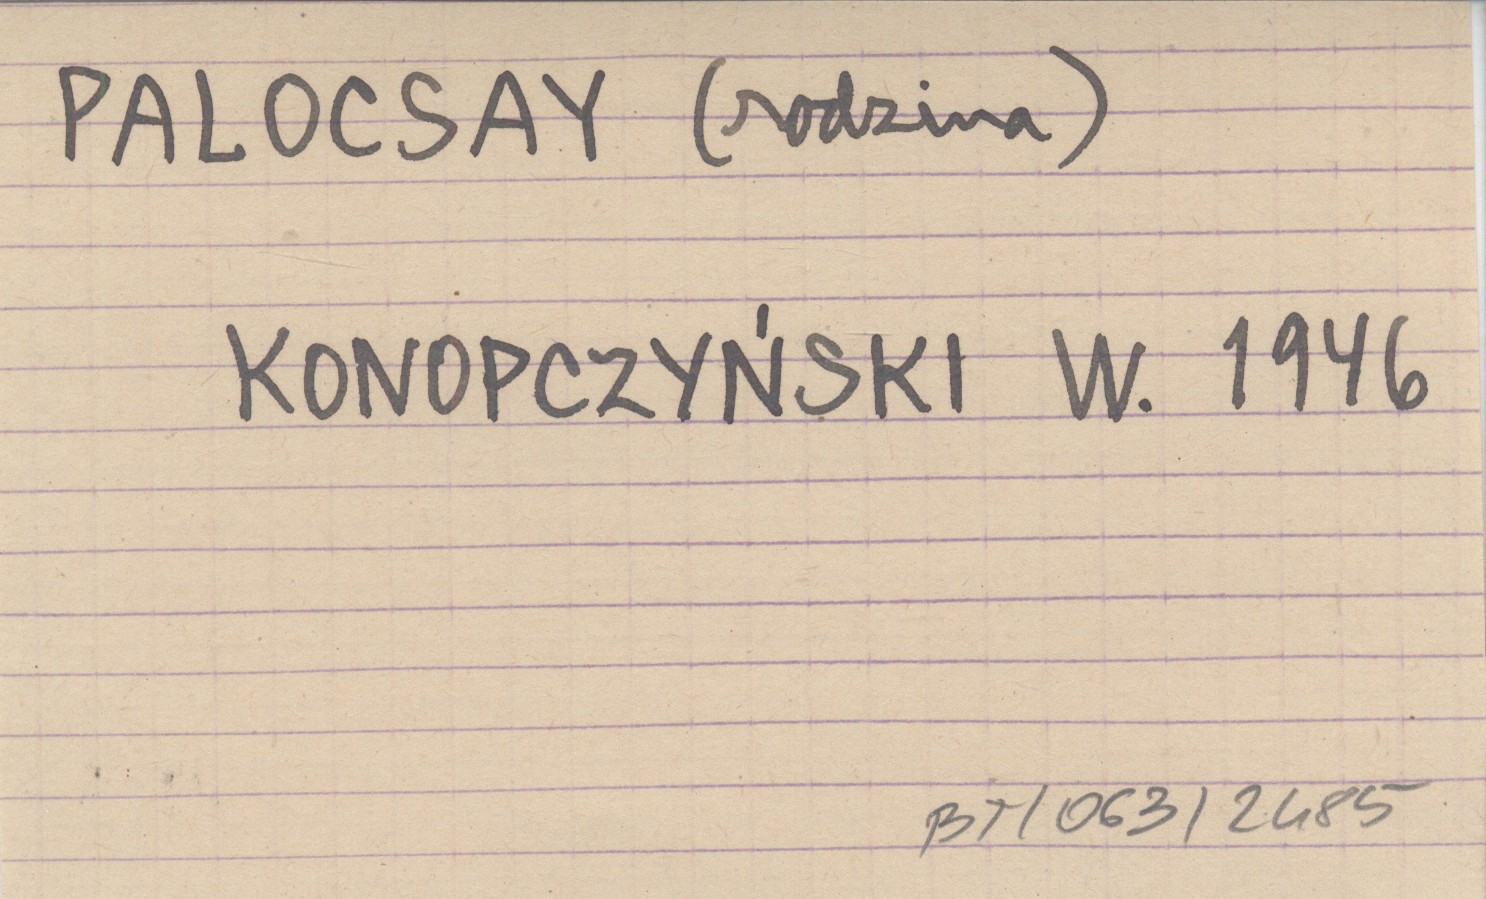 PALOCSAY (rodzina)
KONOPCZYŃSKI W. 1946
BT/063/2485